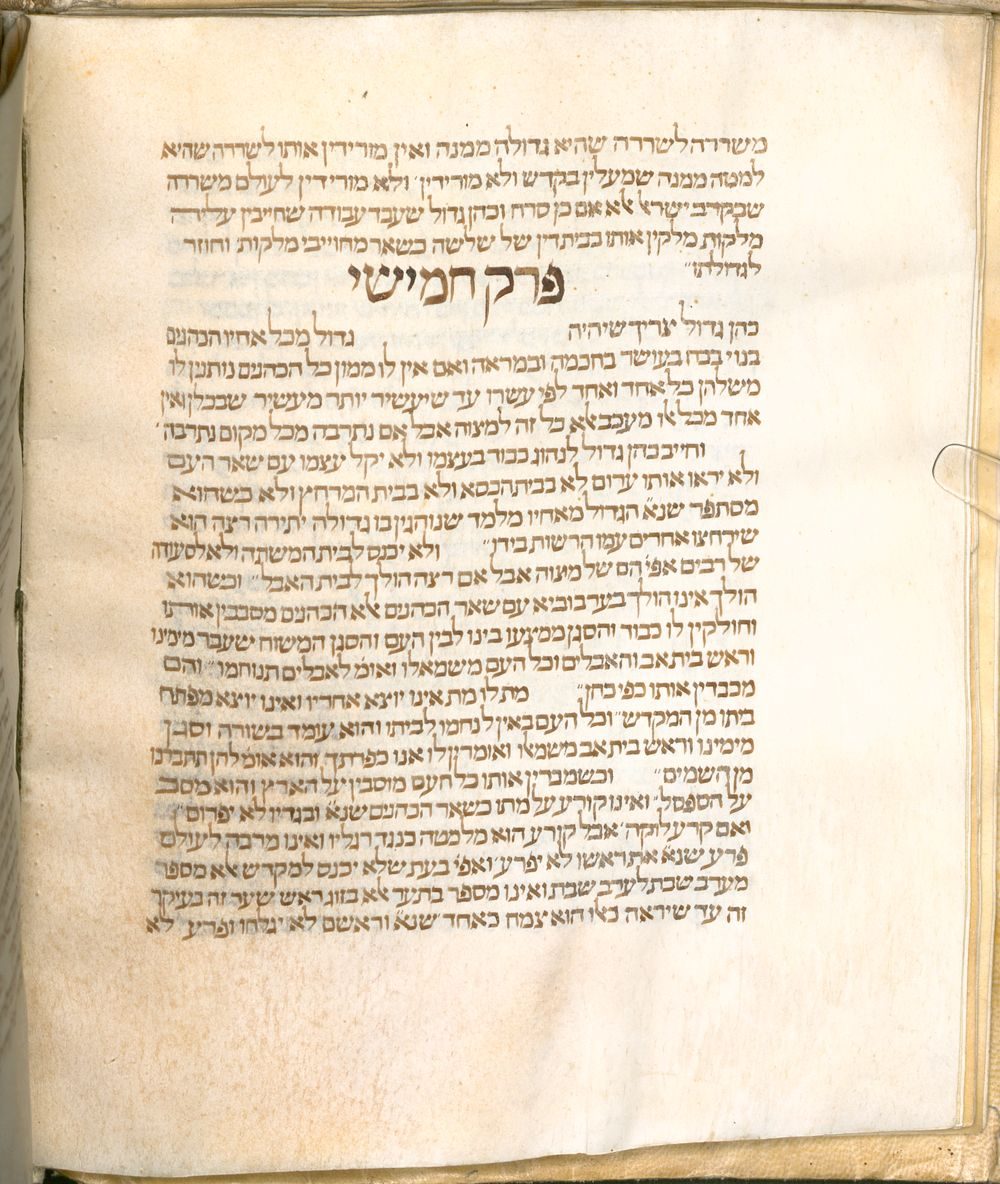 משררה לשררה שהיא גדולה ממנה ואין מורידין אותו לשררה שהיא
למטה ממנה שמעלין בקדש ולא מורידין ולא מורידין לעולם משררה
שבקרב ישראל אלא אם כן סרח וכהן גדול שעבר עבודה שחייבין עליה
מלקות מלקין אותו בבית דין של שלשה כשאר מחוייבי מלקות וחוזר
לגדולתו״
פרק חמישי
כהן גדול צריך שיהיה גדול מכל אחיו הכהנים
בנוי בכח בעושר בחכמה ובמראה ואם אין לו ממון כל הכהנים נותנין לו
משלהן כל אחד ואחד לפי עשרו עד שיעשיר יותר מעשיר שבכלן ואין
אחד מכל אלו מעכב אלא כל זה למצוה אבל אם נתרבה מכל מקום נתרבה׳
וחייב כהן גדול לנהוג כבוד בעצמו ולא יקל עצמו עם שאר העם
ולא יראו אותו ערום לא בבית הכסא ולא בבית המרחץ ולא כשהוא
מסתפר שנא׳ הגדול מאחיו מלמד שנוהגין בו גדולה יתירה רצה הוא
שירחצו אחרים עמו הרשות בידו״ ולא יכנס לבית המשתה ולא לסעודה
של רבים אפי׳ הם של מצוה אבל אם רצה הולך לבית האבל״ וכשהוא
הולך אינו הולך בערבוביא עם שאר הכהנים אלא הכהנים מסבבין אותו
וחולקין לו כבוד והסגן ממצעו בינו לבין העם והסגן המשוח שעבר מימינו
וראש בית אב והאבלים וכל העם משמאלו ואומ׳ לאבלים תנוחמו״ והם
מכבדין אותו כפי כחן״ מת לו מת אינו יוצא אחריו ואינו יוצא מפתח
ביתו מן המקדש״ וכל העם באין לנחמו לביתו והוא עומד בשורה וסגן
מימינו וראש בית אב משמאלו ואומרין לו אנו כפרתך והוא אומ׳ להן תתברכו
מן השמים״ וכשמברין אותו כל העם מוסבין על הארץ והוא מסב
על הספסל״ ואינו קורע על מתו כשאר הכהנים שנא׳ ובגדיו לא יפרום״
ואם קרע לוקה׳ אבל קורע הוא מלמטה כנגד רגליו ואינו מרבה לעולם
פרע שנא׳ את ראשו לא יפרע׳ ואפי׳ בעת שלא יכנס למקדש אלא מספר
מערב שבת לערב שבת ואינו מספר בתער אלא בזוג ראש שער זה בעיקר
זה עד שיראה כאלו הוא צמח כאחד שנא׳ וראשם לא יגלחו ופרע לא